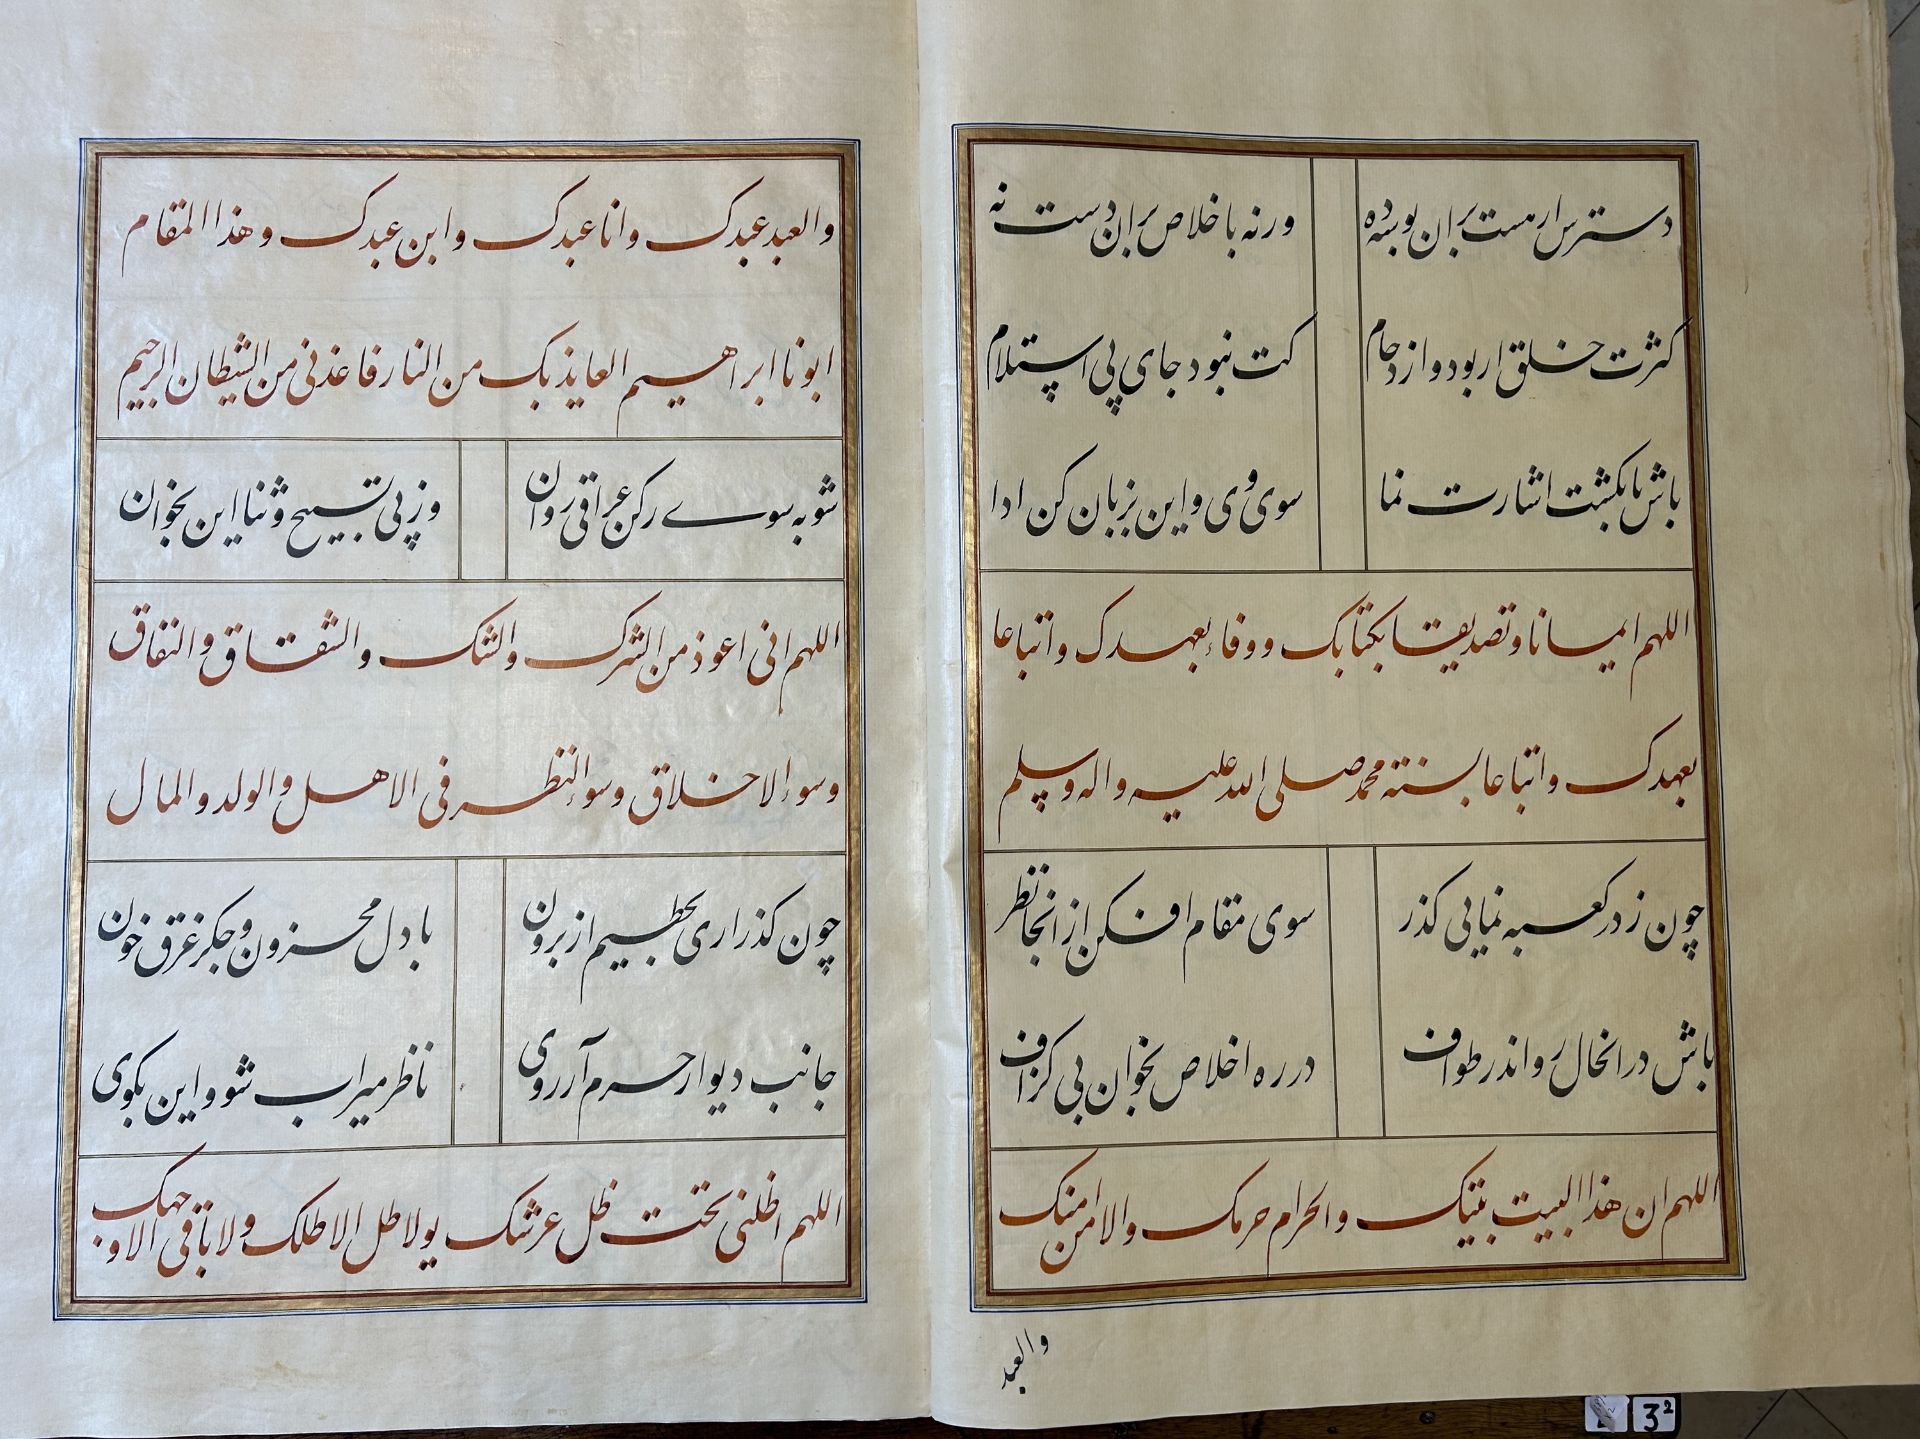 دسترس ار هست بران بوسه ده ورنه باخلاص بران دست نه
کثرت خلق ار بود و ازدحام کت نبود جای پی استلام
باش بانکشت اشارت نما سوی وی و این بزبان کن ادا
اللهم ایمانا و تصدیقا بکتابک و وفاء بعهدک و اتباعا
بعهدک و اتباعا بسنته محمد صلی الله علیه و اله و سلم
چون ز در کعبه نمایی کذر سوی مقام افکن از انجا نظر
باش در انحال رو اندر طواف در ره اخلاص بخوان بی کزاف
اللهم ان هذا البیت بیتک والحرام حرمک والامن امنک
والعبد
والعبد عبدک وانا عبدک وابن عبدک وهذا المقام
ابونا ابراهیم العایذ بک من النار فاعذنی من الشیطان الرجیم
شو به سوے رکن عراقی روان وز پی تسبیح و ثنا این بخوان
اللهم انی اعوذ من الشرک والشک والشقاق والنفاق
وسوء الاخلاق وسوء النظر فی الاهل والولد والمال
چون کذر اری بحطیم از برون با دل محزون و جکر غرق خون
جانب دیوار حرم آر روی ناظر میزاب شو و این بکوی
اللهم اظلنی تحت ظل عرشک یولا ظل الا ظلک ولا باقی الا وجهک
3²